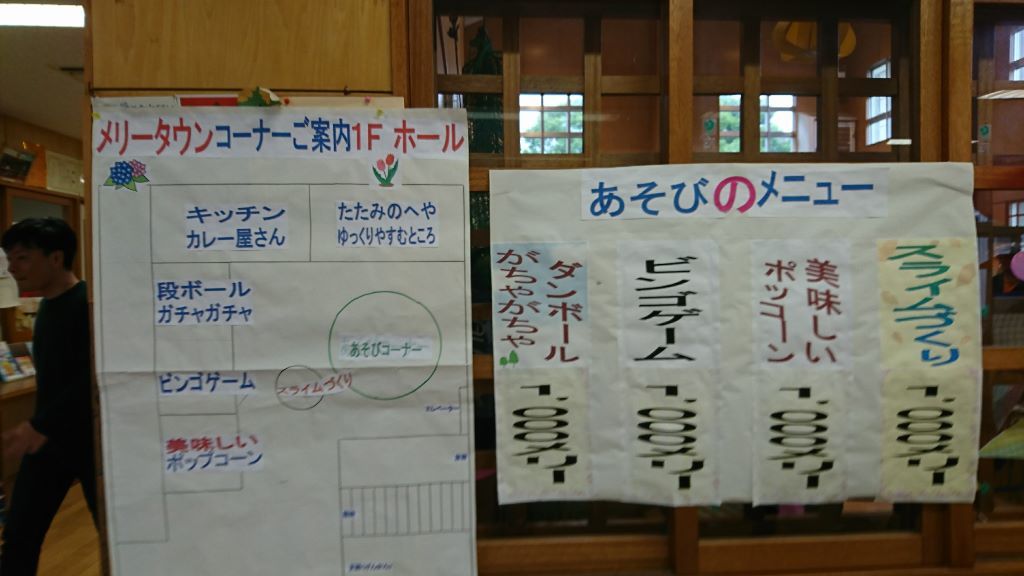 メリータウンコーナーご案内1F ホール
キッチン
カレー屋さん
たたみのへや
ゆっくりやすむところ
段ボール
ガチャガチャ
あそびコーナー
ビンゴゲーム
スライムづくり
エレベーター
美味しい
ポップコーン
あそびのメニュー
スライムづくり
1,000メリー
美味しい
ポップコーン
1,000メリー
ビンゴゲーム
1,000メリー
ダンボール
がちゃがちゃ
1,000メリー